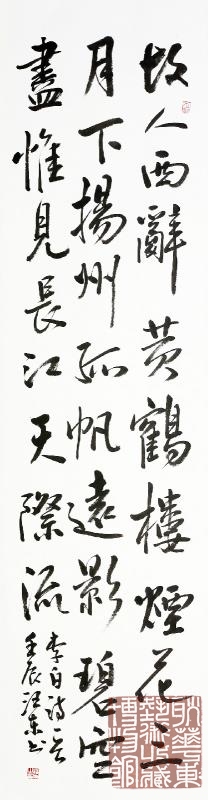 故人西辭黄鶴樓煙花三
月下揚州孤帆遠影碧空
盡惟見長江天際流
李白詩一首
壬辰
博物館